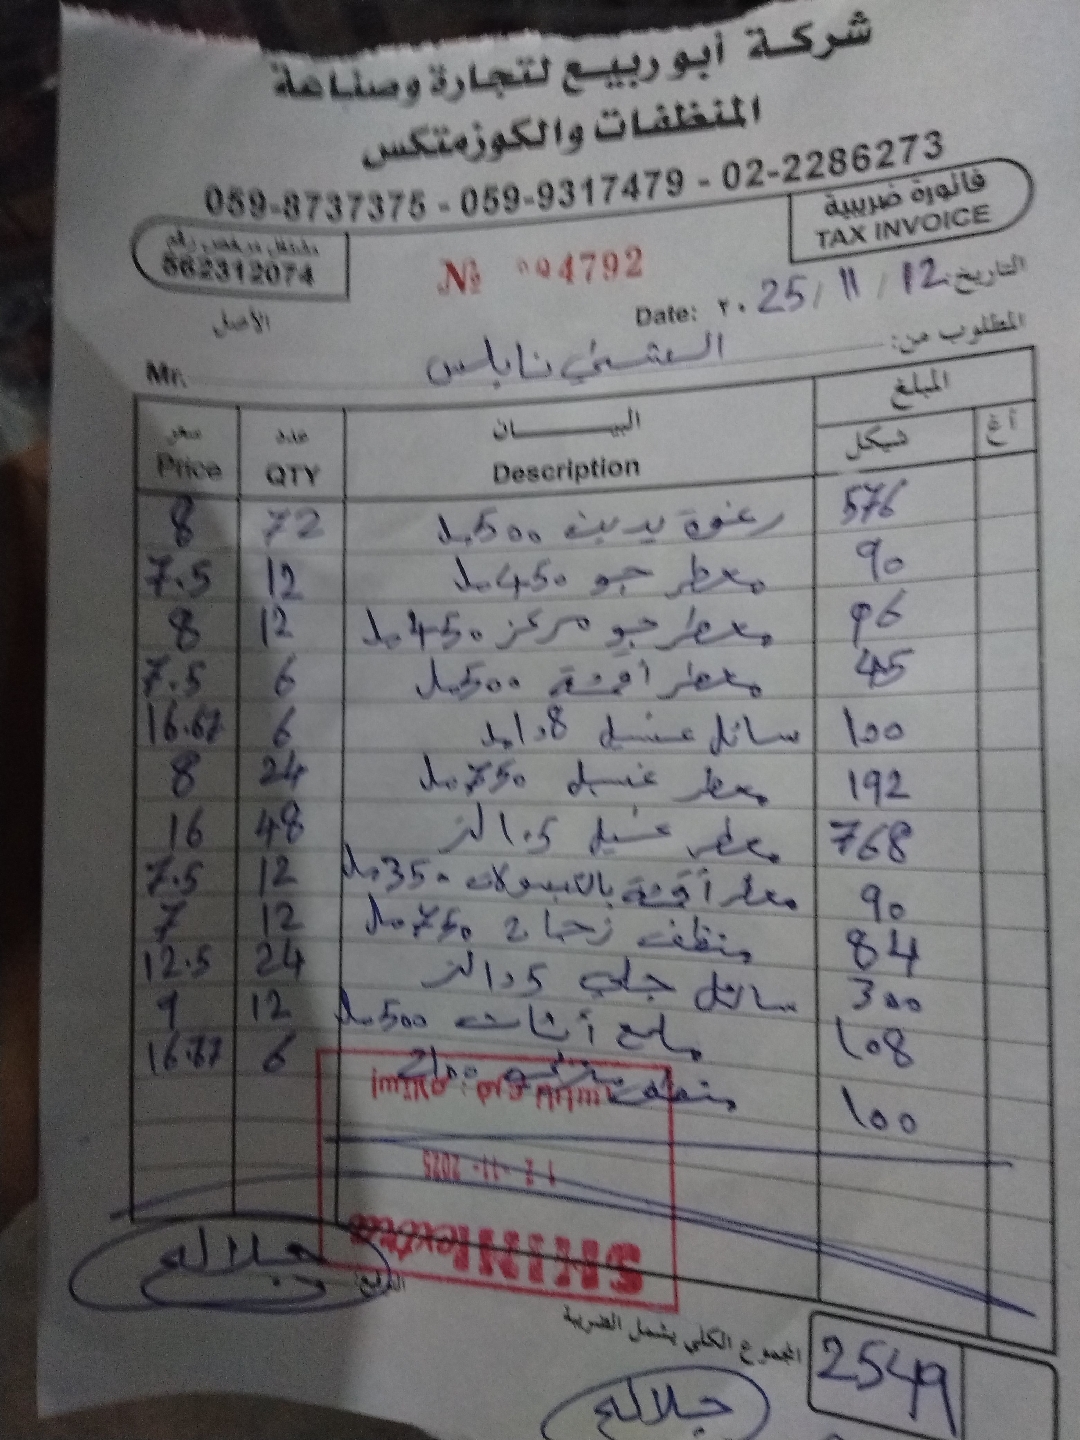 شركة أبو ربيع لتجارة وصناعة
المنظفات والكوزمتكس
059-8737375 - 059-9317479 - 02-2286273
فاتورة ضريبية
TAX INVOICE
مشتغل مرخص رقم
562312074
№ 004792
الأصل
التاريخ: 12 / 11 / 2025 Date:
المطلوب من: نابلس Mr.
سعر عدد البيـــــــان المبلغ
Price QTY Description شيكل أغ
8 72 رغوة يدين 500 مل 576
7.5 12 معطر جو 450 مل 90
8 12 معطر جو مركز 450 مل 96
7.5 6 معطر أقمشة 500 مل 45
16.67 6 سائل غسيل 100
8 24 معطر غسيل 750 مل 192
16 48 معطر غسيل 1.5 لتر 768
7.5 12 معطر أقمشة بالكبسولات 350 مل 90
7 12 منظف زجاج 750 مل 84
12.5 24 سائل جلي 1.5 لتر 300
9 12 ملمع أثاث 500 مل 108
16.67 6 منظف 100
12-11-2025
التوقيع:
المجموع الكلي يشمل الضريبة 2549